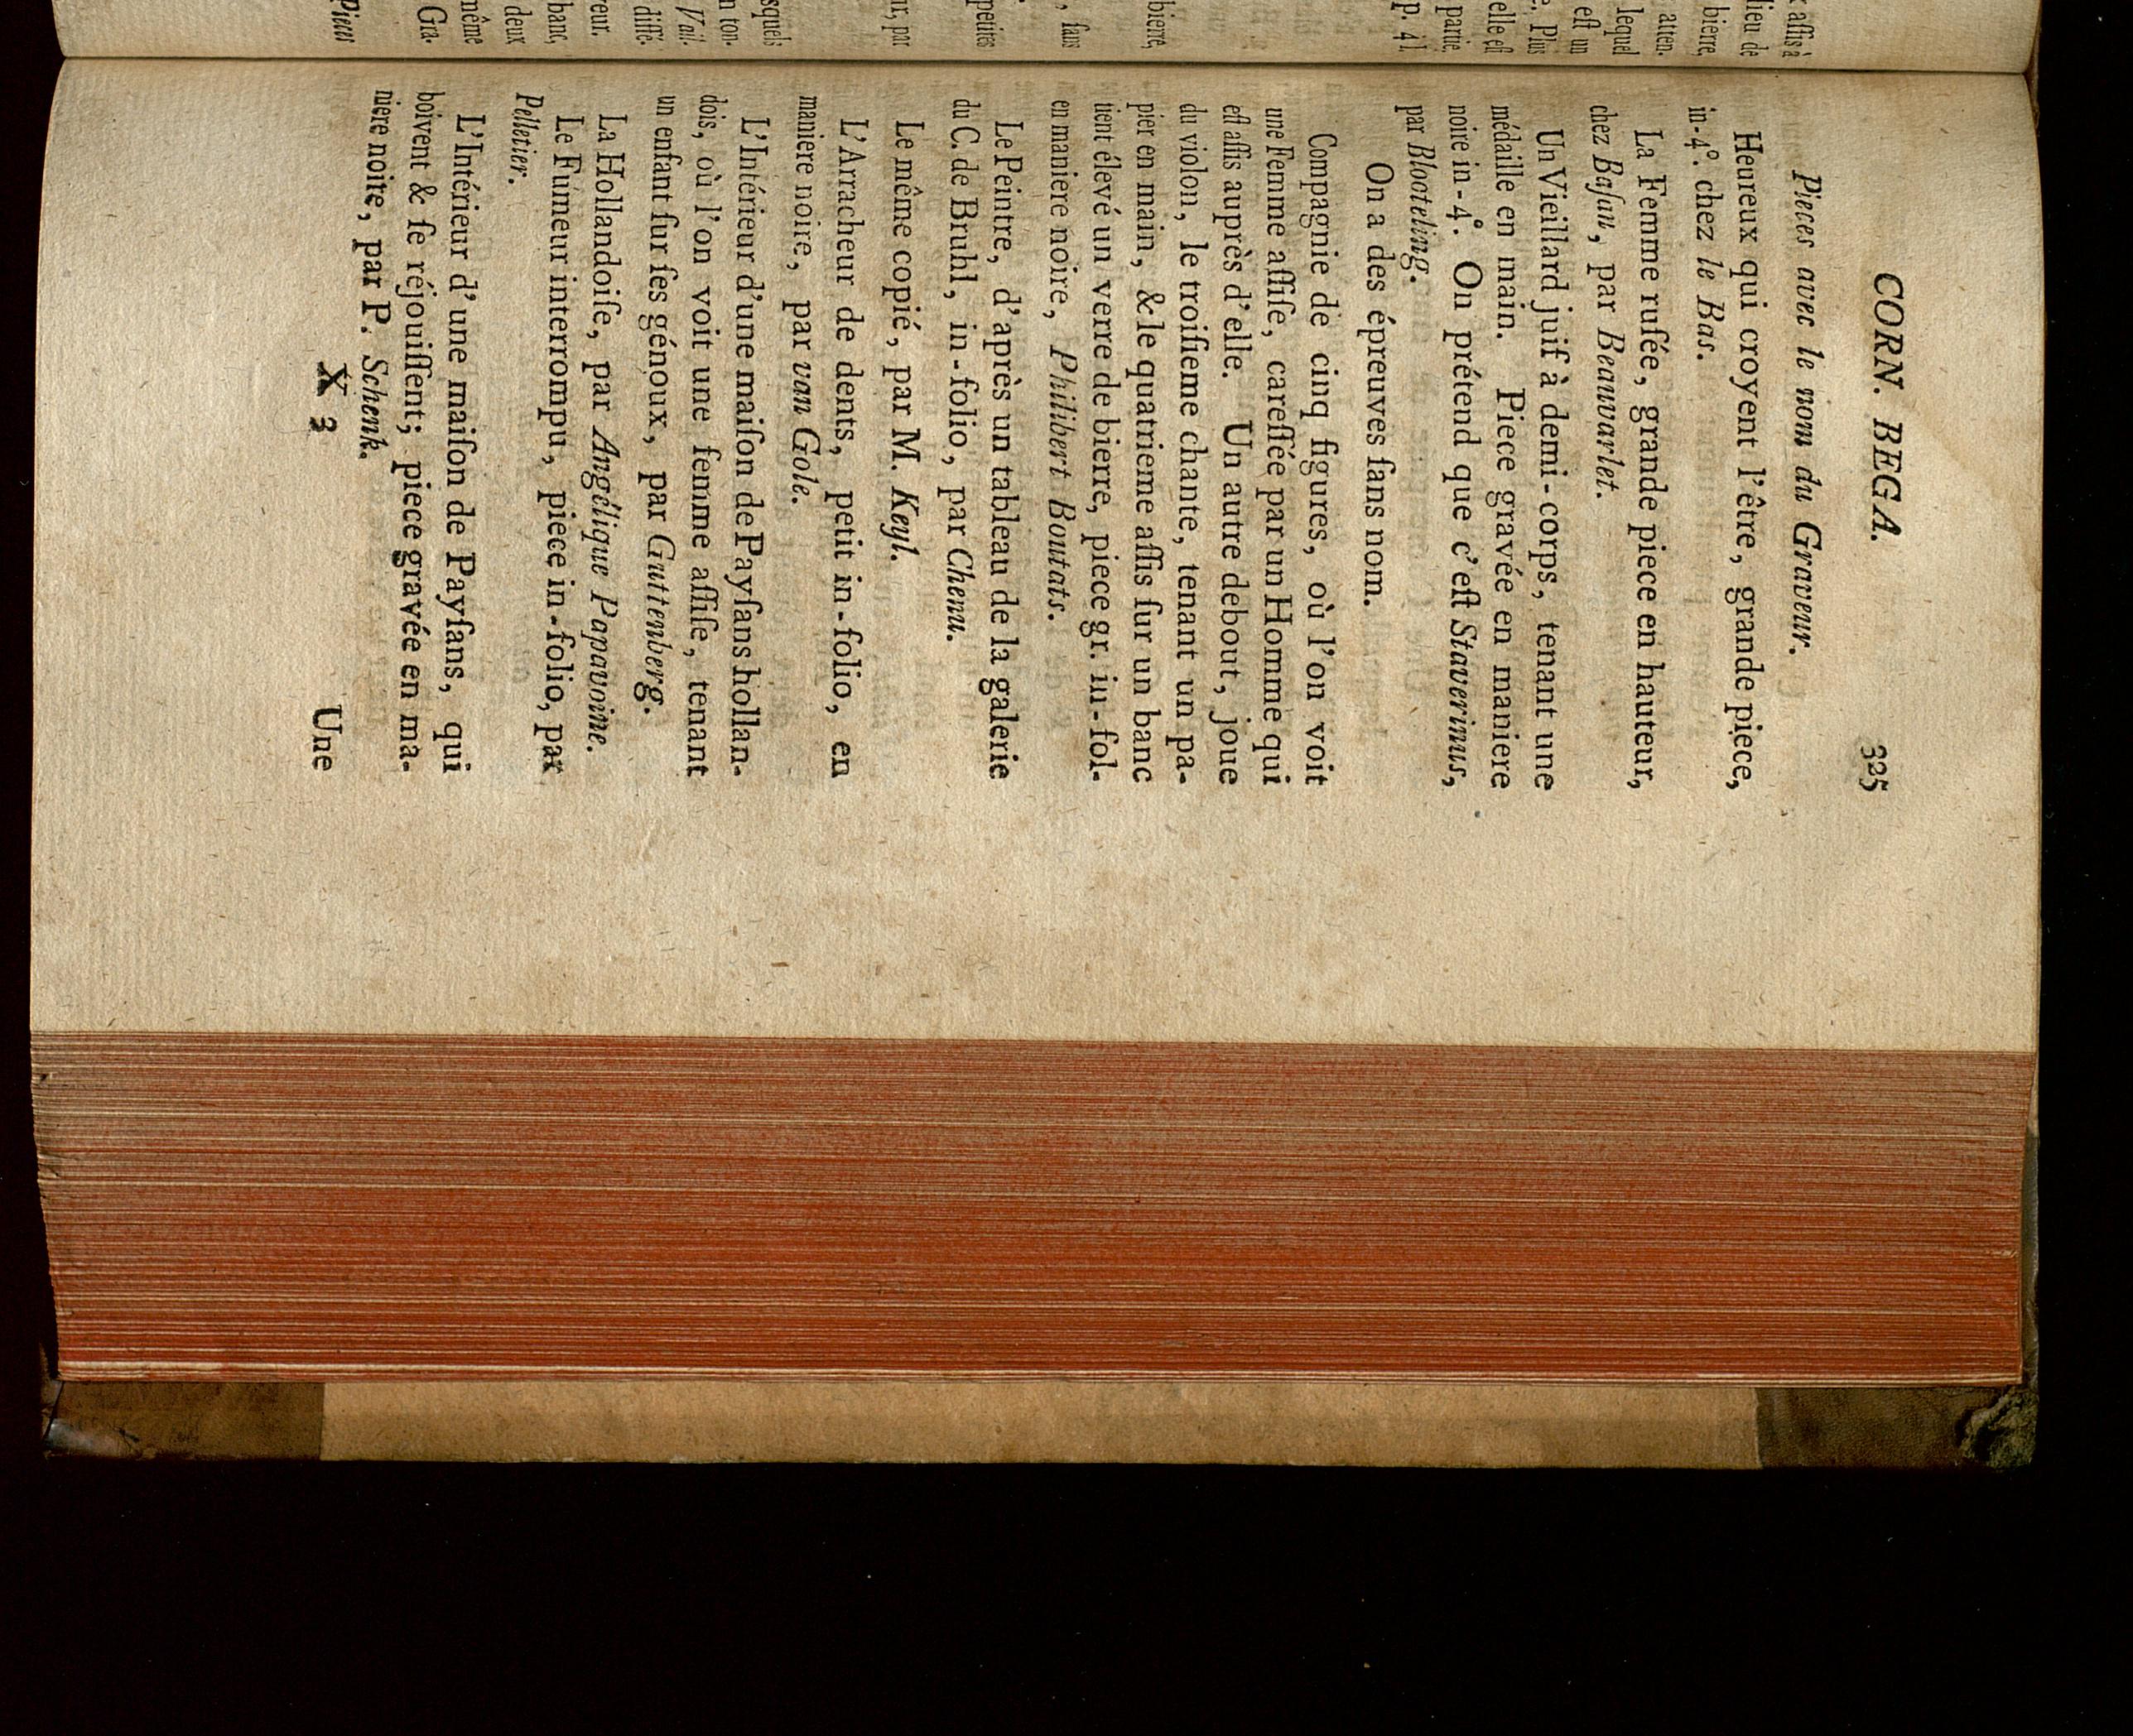 CORN. BEGA. 325
Pieces avec le nom du Graveur.
Heureux qui croyent l'être, grande piece,
in-4°. chez le Bas.
La Femme ruſée, grande piece en hauteur,
chez Baſan, par Beauvarlet.
Un Vieillard juif à demi-corps, tenant une
médaille en main. Piece gravée en maniere
noire in-4°. On prétend que c'eſt Staverinus,
par Blooteling.
On a des épreuves ſans nom.
Compagnie de cinq figures, où l'on voit
une Femme aſſiſe, careſſée par un Homme qui
eſt aſſis auprès d'elle. Un autre debout, joue
du violon, le troiſieme chante, tenant un pa-
pier en main, & le quatrieme aſſis ſur un banc
tient élevé un verre de bierre, piece gr. in-fol-
en maniere noire, Philibert Boutats.
Le Peintre, d'après un tableau de la galerie
du C. de Bruhl, in-folio, par Chenu.
Le même copié, par M. Keyl.
L'Arracheur de dents, petit in-folio, en
maniere noire, par van Gole.
L'Intérieur d'une maiſon de Payſans hollan-
dois, où l'on voit une femme aſſiſe, tenant
un enfant ſur ſes génoux, par Guttenberg.
La Hollandoiſe, par Angélique Papavoine.
Le Fumeur interrompu, piece in-folio, par
Pelletier.
L'Intérieur d'une maiſon de Payſans, qui
boivent & ſe réjouiſſent; piece gravée en ma-
niere noire, par P. Schenk.
X 3 Une
x aſſis à
lieu de
bierre,
atten-
lequel
eſt un
e. Plus
elle eſt
partie.
p. 41
bierre,
, ſans
petites
ur, par
squels
n ton-
Vail-
diffé-
reur.
banc,
deux
même
Gra-
Pieces